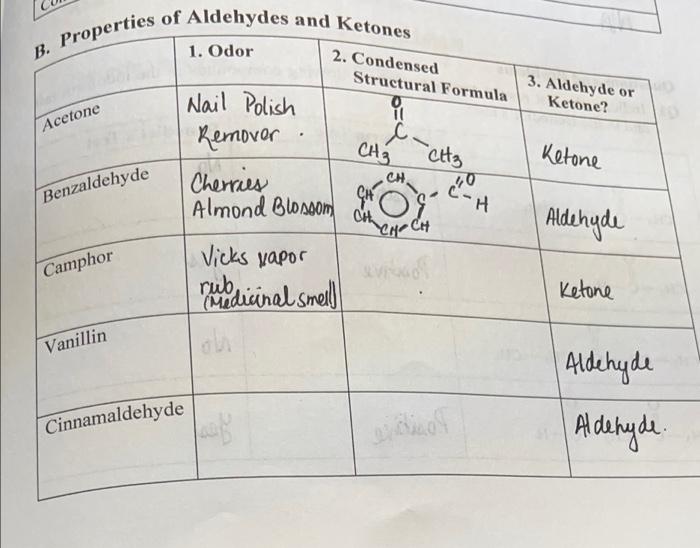 B. Properties of Aldehydes and Ketones
1. Odor
2. Condensed
Structural Formula
3. Aldehyde or
Ketone?
Acetone
Nail Polish
Removar .
O
C
CH3 CH3
Ketone
Benzaldehyde
Cherries
Almond Blossom
CH
CH C - C - H
O
CH CH
CH
Aldehyde
Camphor
Vicks vapor
rub
(Medicinal smell)
Ketone
Vanillin
Aldehyde
Cinnamaldehyde
Aldehyde.